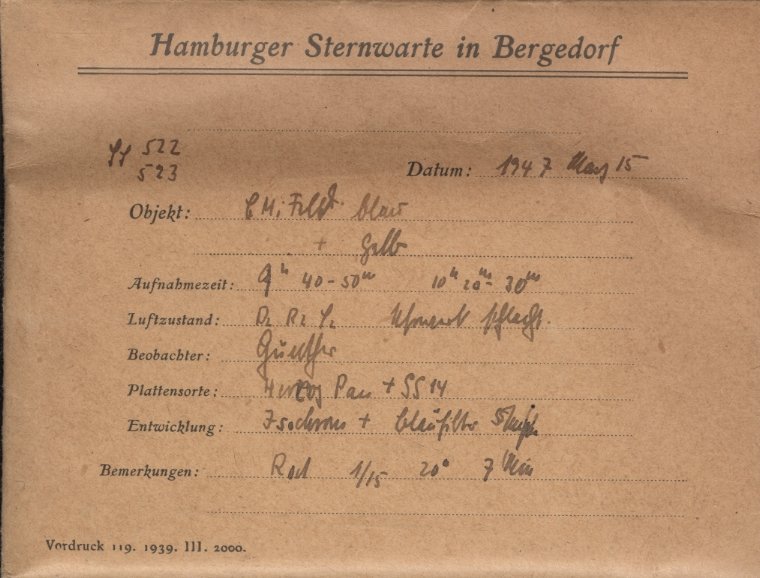 Hamburger Sternwarte in Bergedorf
522
523
Datum: 1947 März 15
Objekt: Feld blau
+ Gelb
Aufnahmezeit: 9h 40-50m 10h 20m- 30m
Luftzustand: D2 R2 schlecht.
Beobachter: Günther
Plattensorte: Herzog Pan + SS 14
Entwicklung: Isochrom + blaufilter
Bemerkungen: Rod 1/15 20° 7 Min
Vordruck 119. 1939. III. 2000.